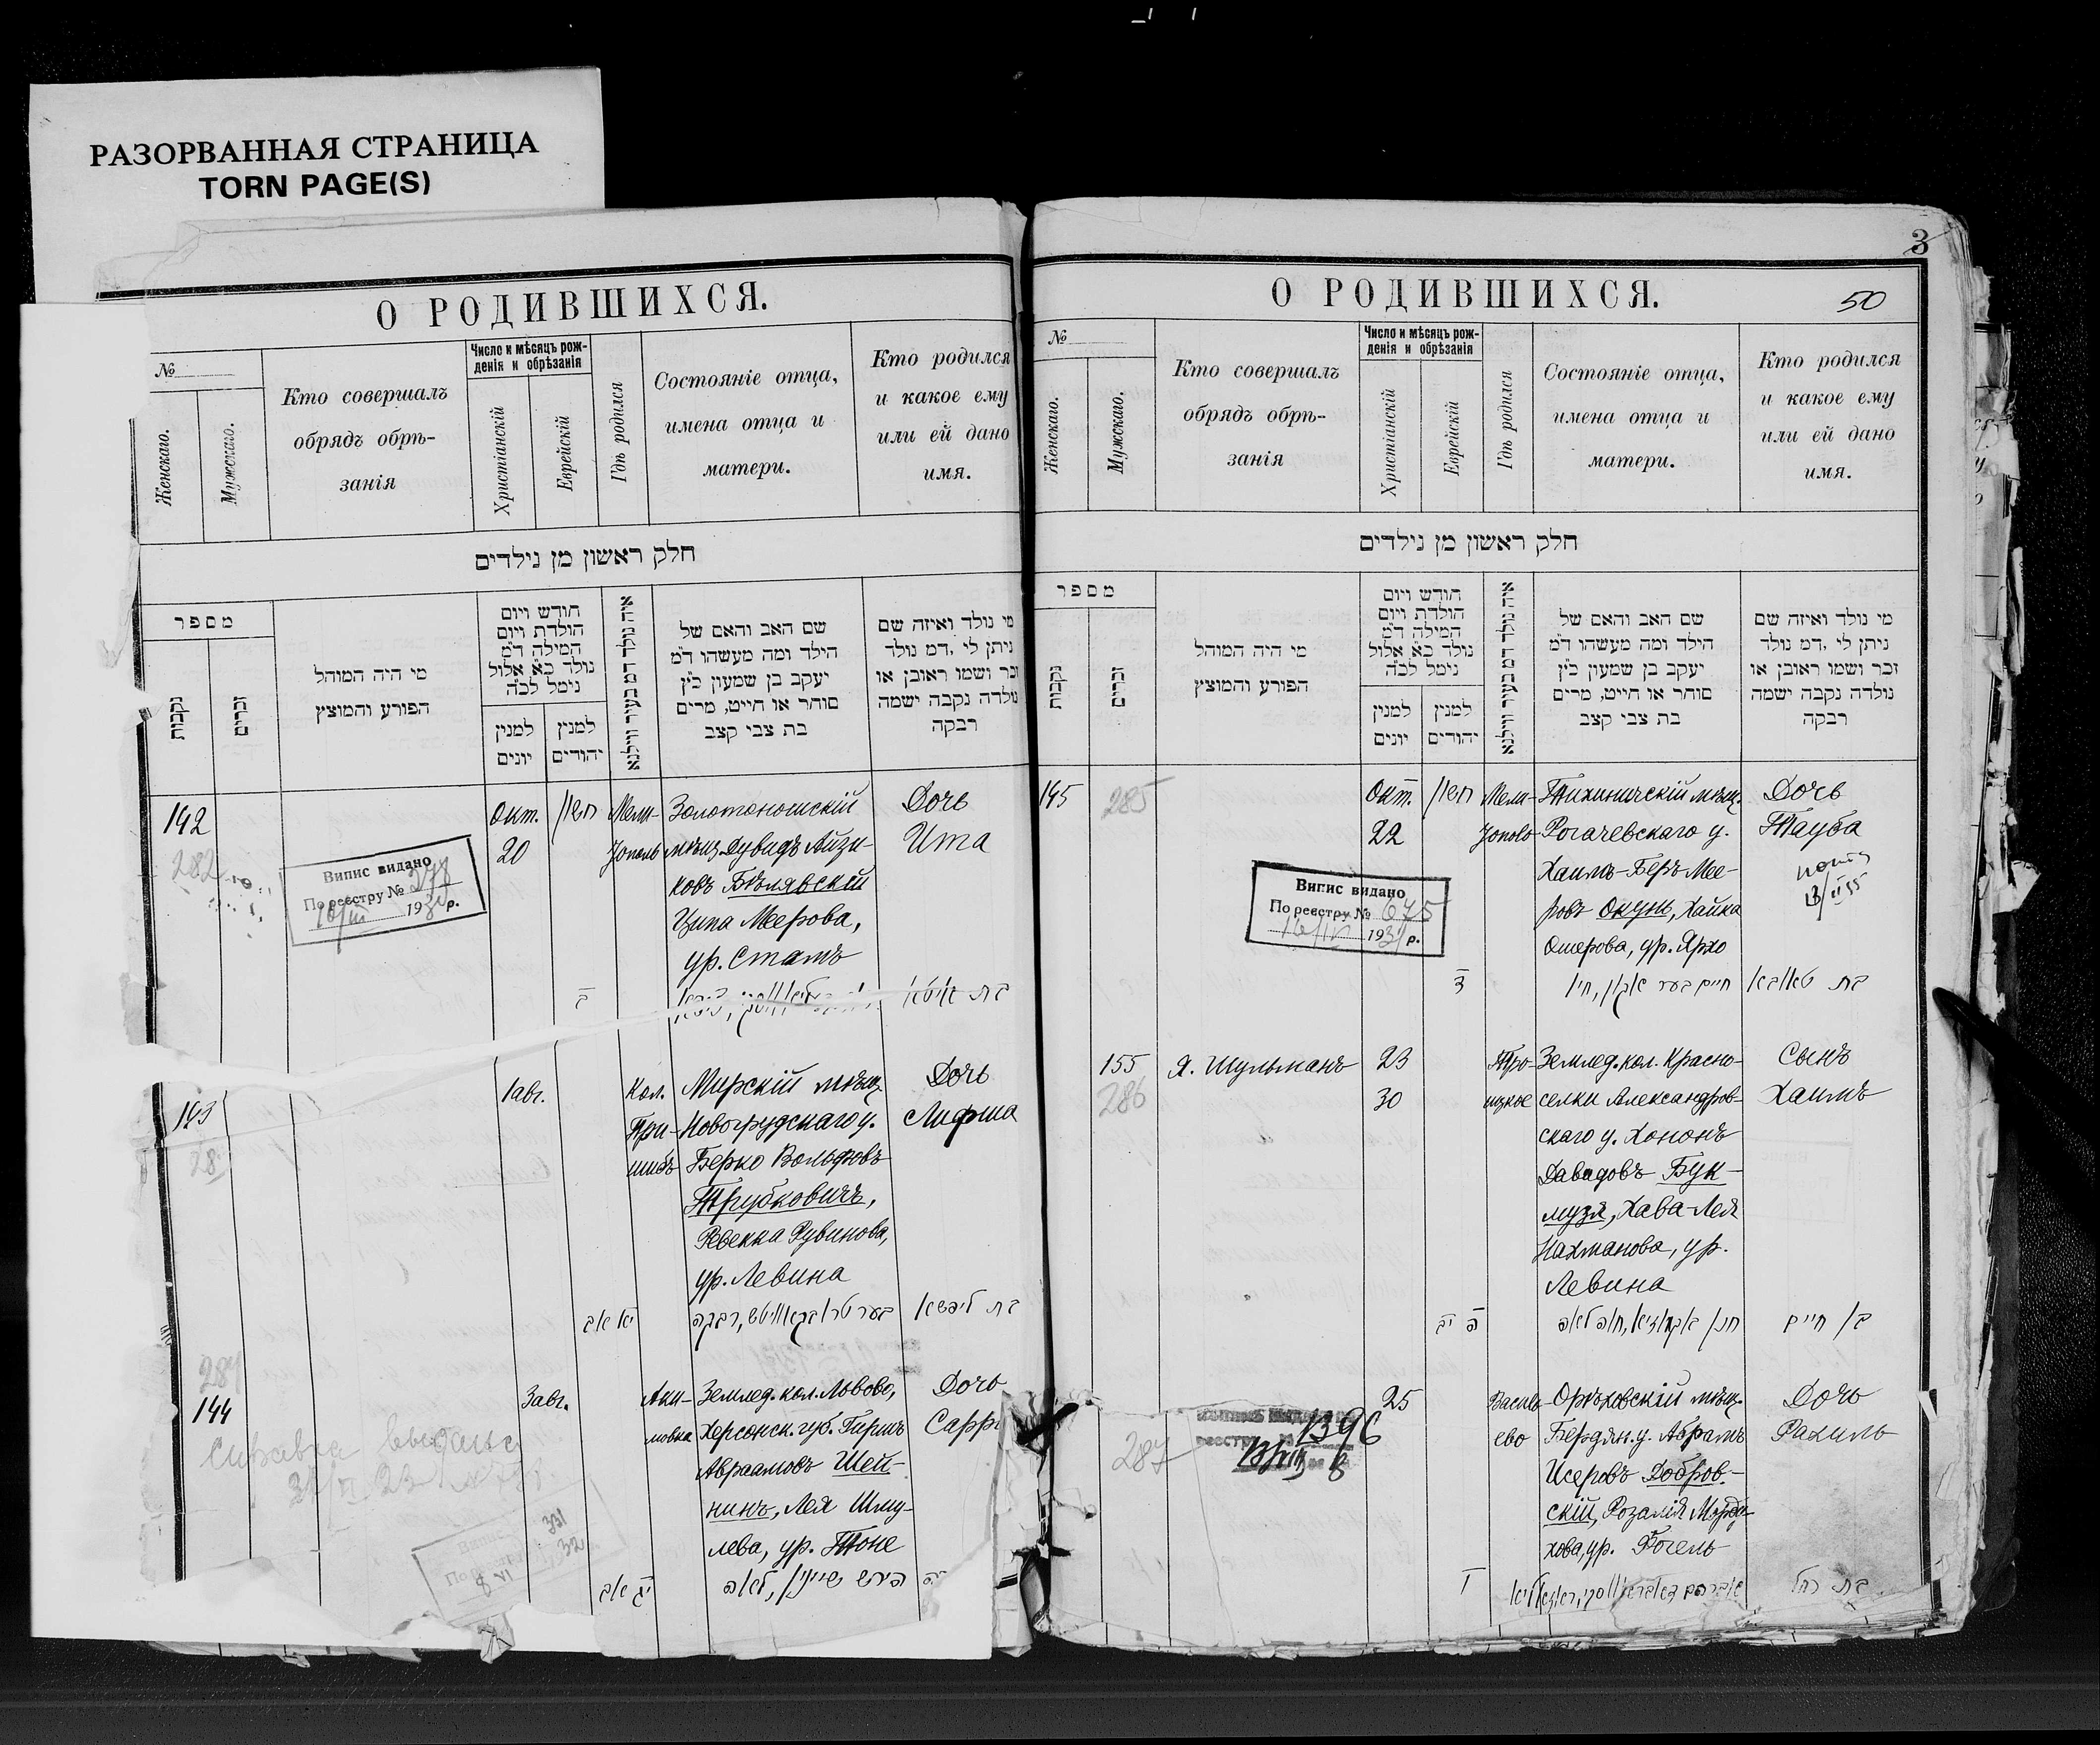 РАЗОРВАННАЯ СТРАНИЦА
TORN PAGE(S)
О РОДИВШИХСЯ.
№
Женскаго.
Мужскаго.
Кто совершалъ
обрядъ обрѣ-
занія
Число и мѣсяцъ рож-
денія и обрѣзанія
Христіанскій
Еврейскій
Гдѣ родился
Состояніе отца,
имена отца и
матери.
Кто родился
и какое ему
или ей дано
имя.
חלק ראשון מן נילדים
מספר
נקבות
זכרים
מי היה המוהל
הפורע והמוצץ
חודש ויום
הולדת ויום
המילה ד״מ
נולד כ״א אלול
נימל לכ״ה
למנין
יונים
למנין
יהודים
איה נולד דמ בעיר ווילנא
שם האב והאם של
הילד ומה מעשהו ד״מ
יעקב בן שמעון כ״ץ
סוחר או חייט, מרים
בת צבי קצב
מי נולד ואיזה שם
ניתן לי ,דמ נולד
זכר ושמו ראובן או
נולדה נקבה ישמה
רבקה
142
282
Випис видано
По реєстру №
193 р.
Окт.
20
חשון
ב
Мели-
тополь
Золотоношскій
мѣщ. Дувидъ Айзи-
ковъ Бѣлявскій
Ципа Меерова,
ур. Стамъ
Дочь
Ита
בת איטא
143
28
1 авг.
יא אב
Кол.
При-
шибъ
Мирскій мѣщ.
Новогрудскаго у.
Берко Вольфовъ
Трубковичъ,
Ревекка Рувинова,
ур. Левина
בער טרובקאוויטש, רבקה
Дочь
Лифша
בת ליפשא
284
144
Справка выдана
331
32
3 авг.
יג אב
Аки-
мовка
Землед. кол. Львово,
Херсонск. губ. Гиршъ
Авраамовъ Шей-
нинъ, Лея Шму-
лева, ур. Тоне
הירש שיינין, לאה
Дочь
Сарра
3
50
О РОДИВШИХСЯ.
№
Женскаго.
Мужскаго.
Кто совершалъ
обрядъ обрѣ-
занія
Число и мѣсяцъ рож-
денія и обрѣзанія
Христіанскій
Еврейскій
Гдѣ родился
Состояніе отца,
имена отца и
матери.
Кто родился
и какое ему
или ей дано
имя.
חלק ראשון מן נילדים
מספר
נקבות
זכרים
מי היה המוהל
הפורע והמוצץ
חודש ויום
הולדת ויום
המילה ד״מ
נולד כ״א אלול
נימל לכ״ה
למנין
יונים
למנין
יהודים
איה נולד דמ בעיר ווילנא
שם האב והאם של
הילד ומה מעשהו ד״מ
יעקב בן שמעון כ״ץ
סוחר או חייט, מרים
בת צבי קצב
מי נולד ואיזה שם
ניתן לי ,דמ נולד
זכר ושמו ראובן או
נולדה נקבה ישמה
רבקה
145
285
Випис видано
По реєстру № 675
193 р.
Окт.
22
חשון
ד
Мели-
тополь
Тихиничскій мѣщ.
Рогачевскаго у.
Хаимъ-Беръ Мее-
ровъ Окунь, Хайка
Ошерова, ур. Ярхо
חיים בער אקון,
Дочь
Тауба
בת טאובא
155
286
Я. Шульманъ
23
30
ה יב
Тро-
ицкое
Землед. кол. Красно-
селки Александров-
скаго у. Хононъ
Давидовъ Бук-
музя, Хава-Лея
Нахманова, ур.
Левина
Сынъ
Хаимъ
בן חיים
287
1396
25
ו
Василь-
ево
Орѣховскій мѣщ.
Бердян. у. Абрамъ
Исеровъ Добров-
скій, Розалія Мордо-
хова, ур. Фогель
Дочь
Рахиль
בת רחל